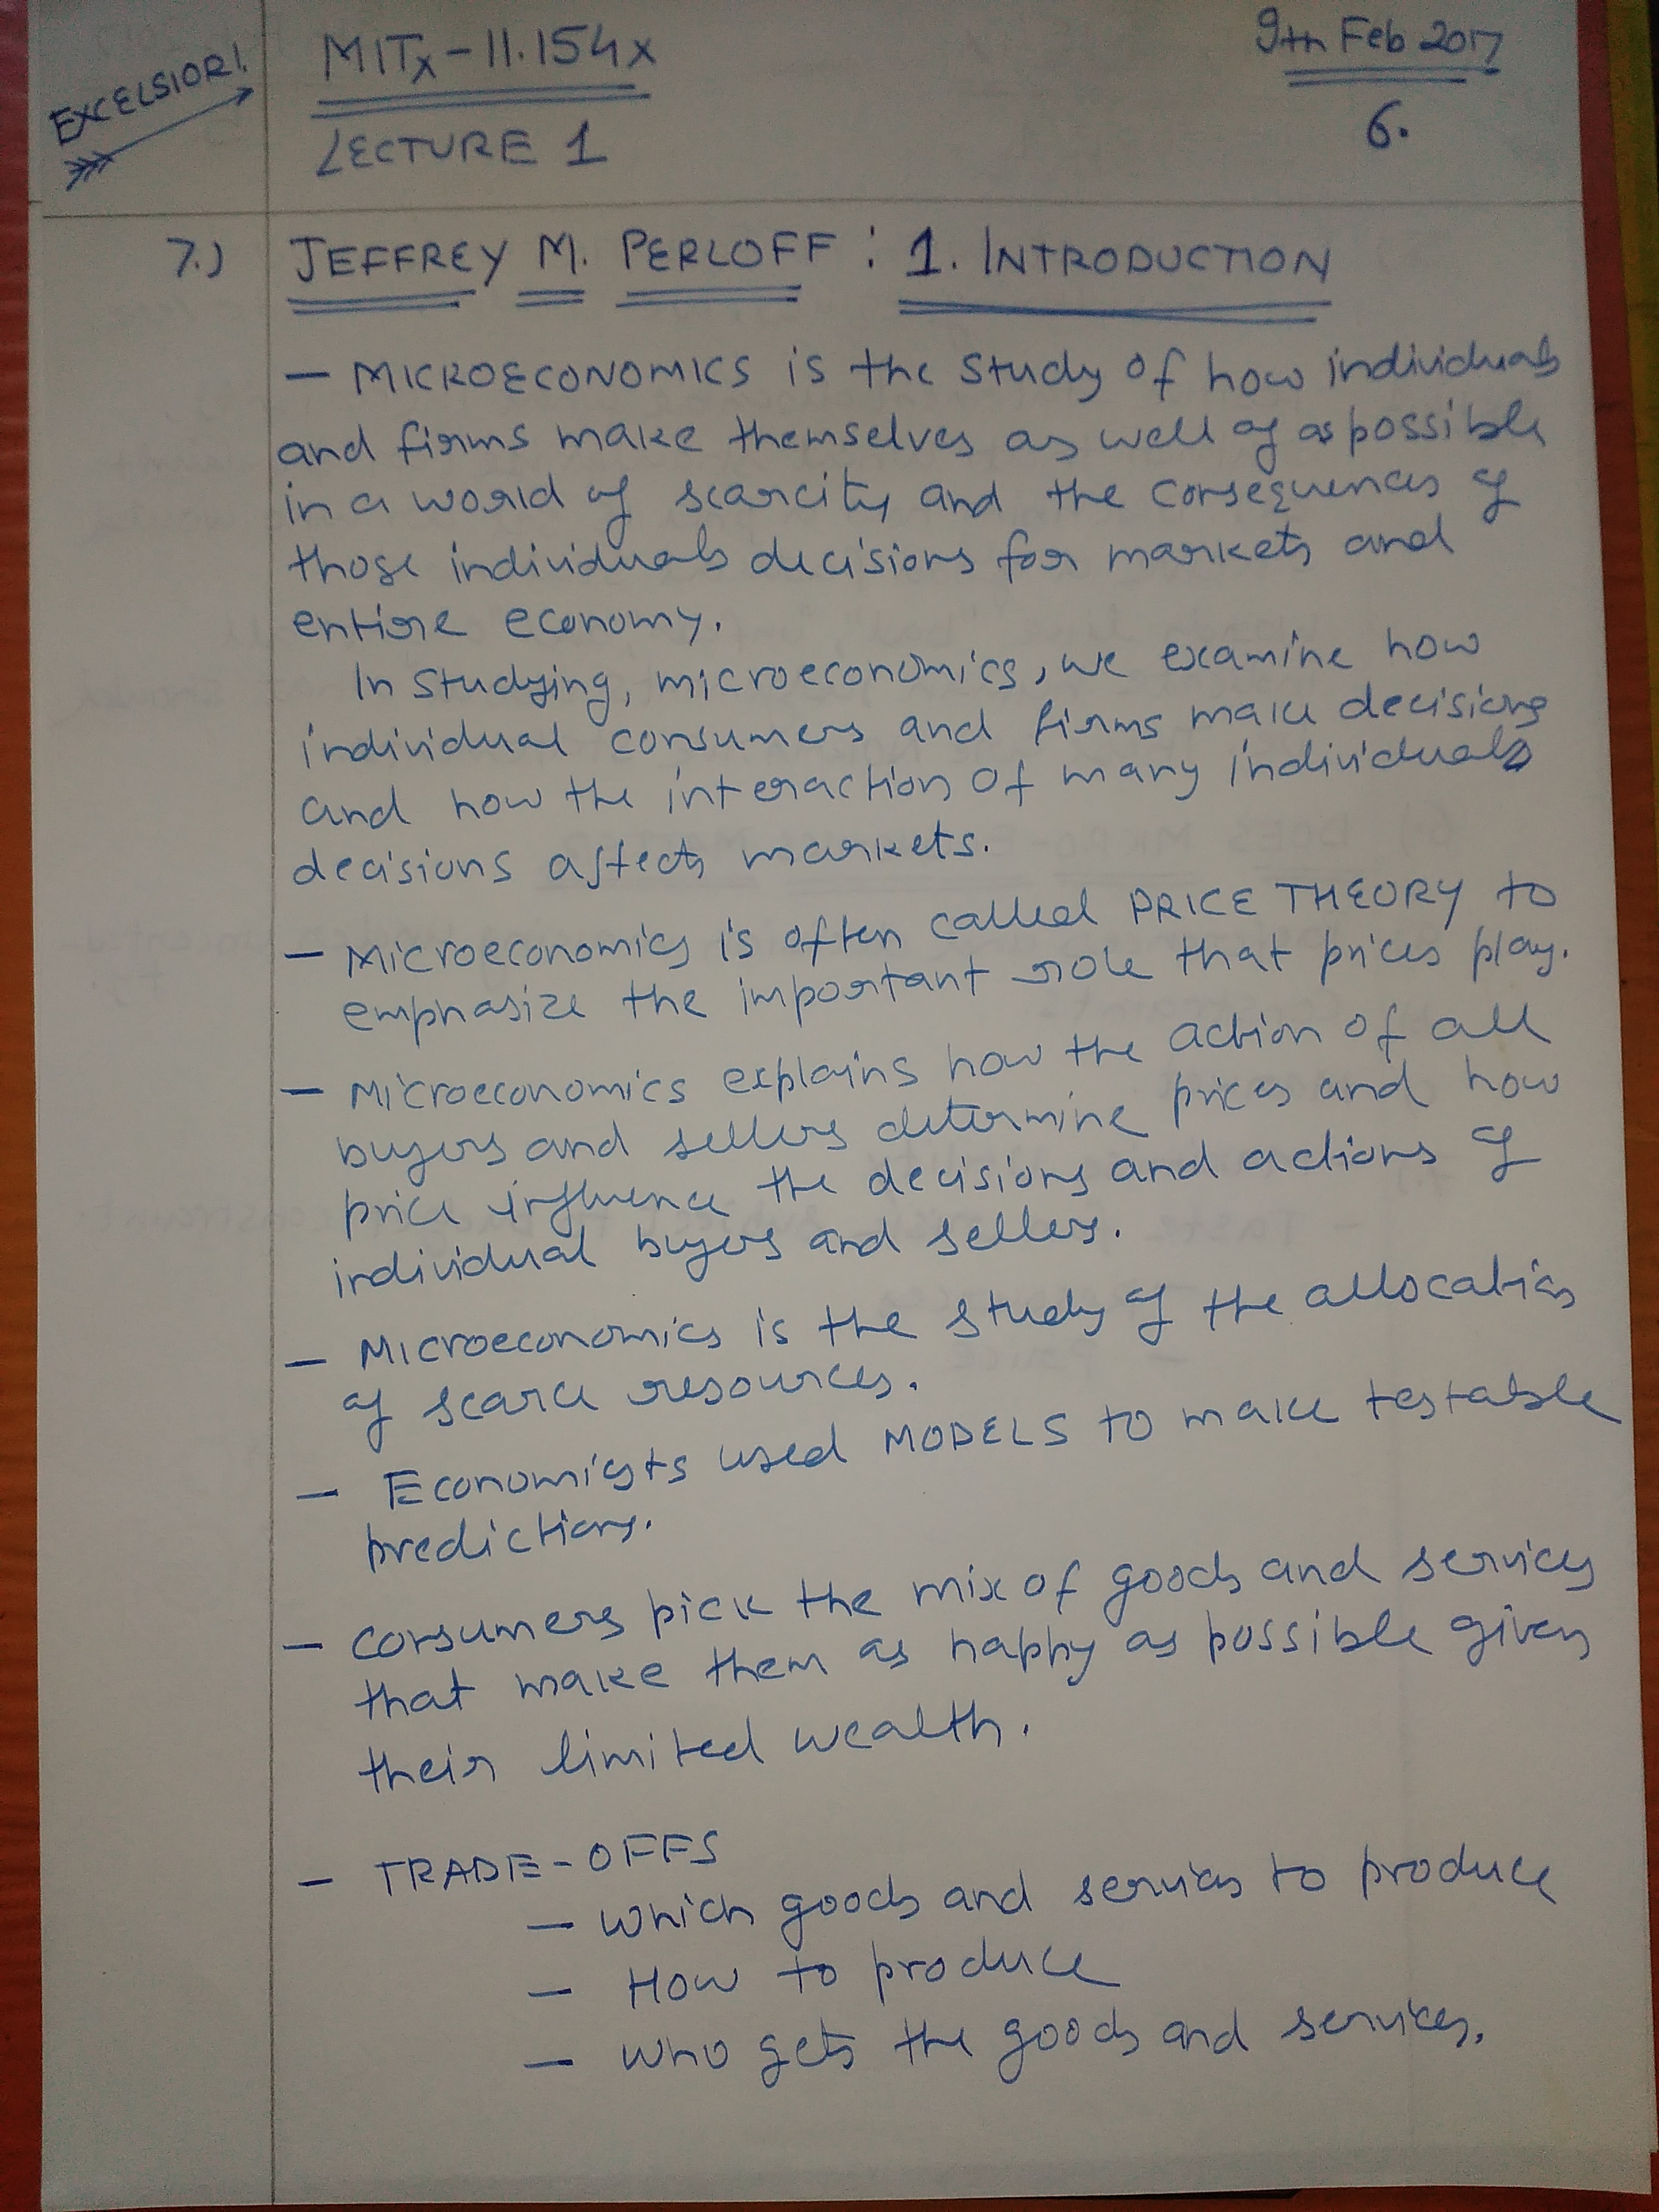 EXCELSIOR!
MITx - 11.154x
LECTURE 1
9th Feb 2017
6.
7.) JEFFREY M. PERLOFF : 1. INTRODUCTION
— MICROECONOMICS is the study of how individuals
and firms make themselves as well of as possible
in a world of scarcity and the consequences of
those individuals decisions for markets and
entire economy.
In studying, microeconomics, we examine how
individual consumers and firms make decisions
and how the interaction of many individuals
decisions affects markets.
— Microeconomics is often called PRICE THEORY to
emphasize the important role that prices play.
— Microeconomics explains how the action of all
buyers and sellers determine prices and how
price influence the decisions and actions of
individual buyers and sellers.
— Microeconomics is the study of the allocation
of scarce resources.
— Economists used MODELS to make testable
predictions.
— Consumers pick the mix of goods and services
that make them as happy as possible given
their limited wealth.
— TRADE-OFFS
— which goods and services to produce
— How to produce
— who gets the goods and services.